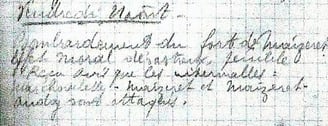 Vendredi 21 août.
Bombardement du fort de Maizeret
effet moral désastreux, pénible
Reçu avis que les intervalles:
Marchovelette - Maizeret et Maizeret-
Andoy sont attaqués.